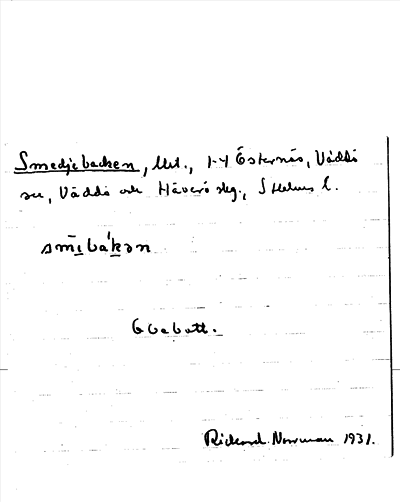 Smedjebacken, lht., 1-4 Östernäs, Väddö
sn, Väddö och Häverö skg., Sthlms l.
smībákən
Obebott.
Rickard Norrman 1931.